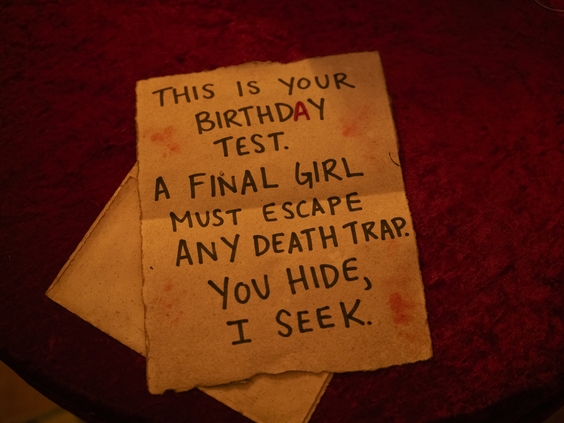 THIS IS YOUR
BIRTHDAY
TEST.
A FINAL GIRL
MUST ESCAPE
ANY DEATH TRAP.
YOU HIDE,
I SEEK.